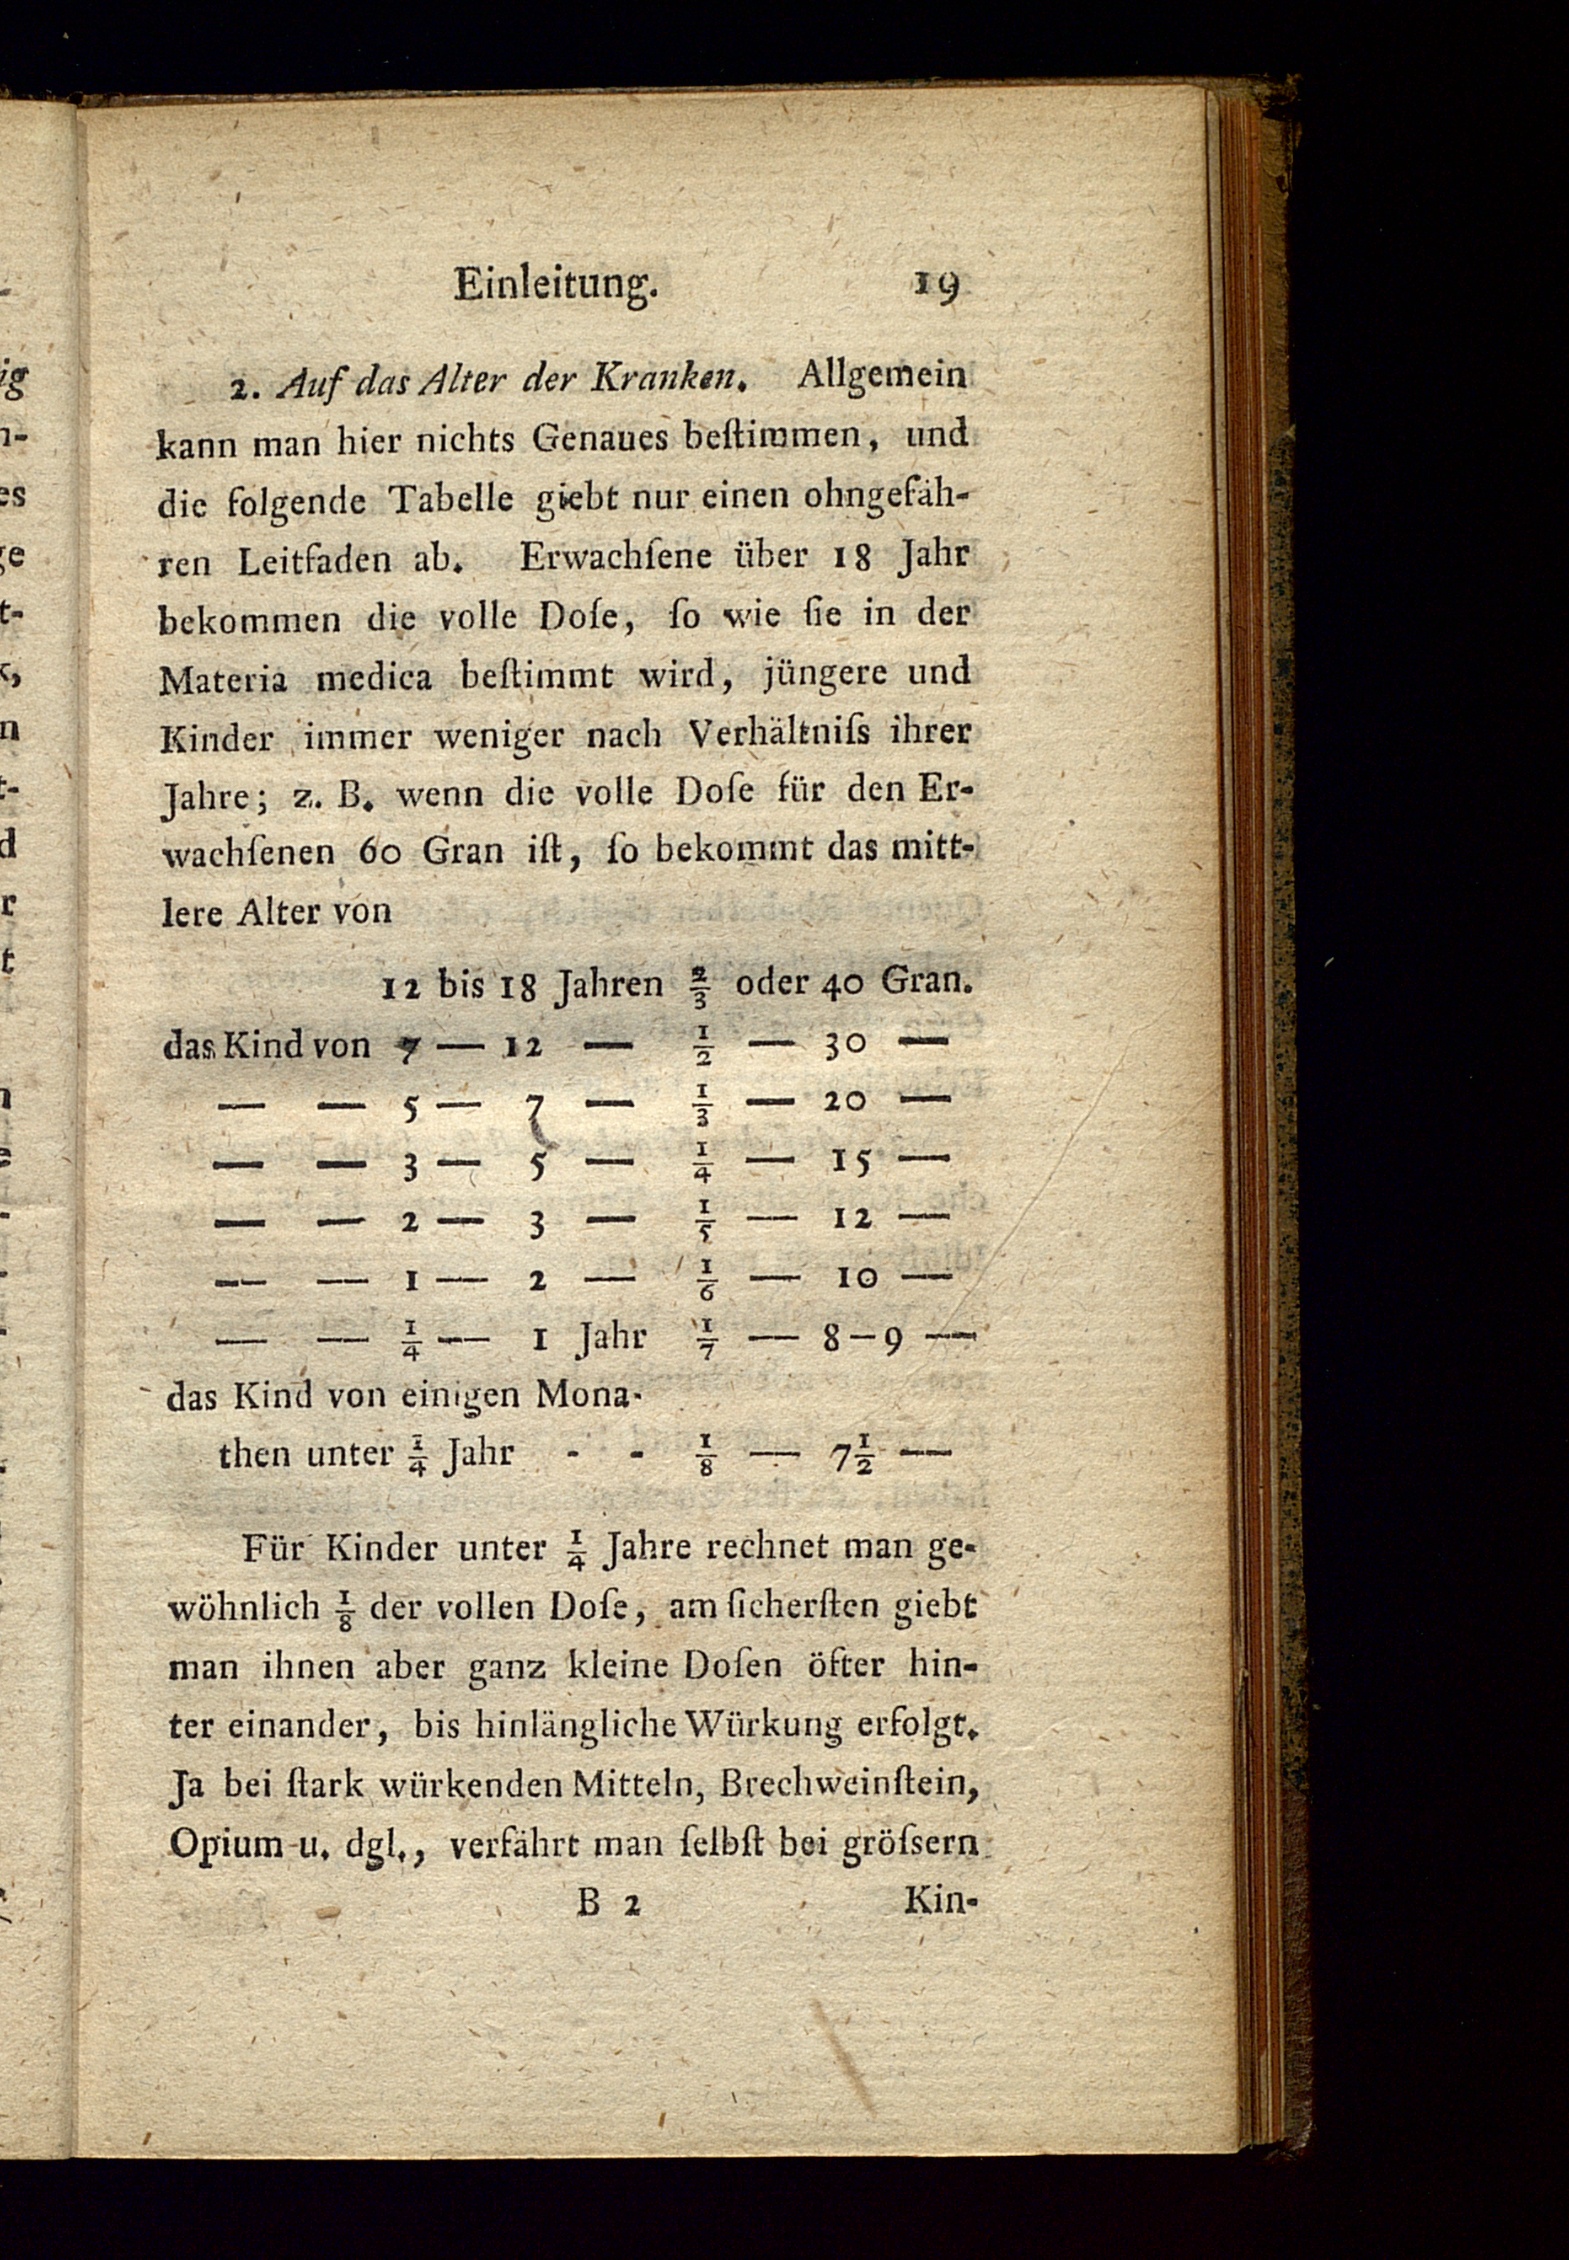 Einleitung. 19
2. Auf das Alter der Kranken. Allgemein
kann man hier nichts Genaues beſtimmen, und
die folgende Tabelle giebt nur einen ohngefäh-
ren Leitfaden ab. Erwachſene über 18 Jahr
bekommen die volle Doſe, ſo wie ſie in der
Materia medica beſtimmt wird, jüngere und
Kinder immer weniger nach Verhältniſs ihrer
Jahre; z. B. wenn die volle Doſe für den Er-
wachſenen 60 Gran iſt, ſo bekommt das mitt-
lere Alter von
12 bis 18 Jahren 2/3 oder 40 Gran.
das Kind von 7 — 12 — 1/2 — 30 —
— — 5 — 7 — 1/3 — 20 —
— — 3 — 5 — 1/4 — 15 —
— — 2 — 3 — 1/5 — 12 —
— — 1 — 2 — 1/6 — 10 —
— — 1/4 — 1 Jahr 1/7 — 8 – 9 —
das Kind von einigen Mona-
then unter 1/4 Jahr - - 1/8 — 7 1/2 —
Für Kinder unter 1/4 Jahre rechnet man ge-
wöhnlich 1/8 der vollen Doſe, am ſicherſten giebt
man ihnen aber ganz kleine Doſen öfter hin-
ter einander, bis hinlängliche Würkung erfolgt.
Ja bei ſtark würkenden Mitteln, Brechweinſtein,
Opium u. dgl., verfährt man ſelbſt bei gröſsern
B 2 Kin-